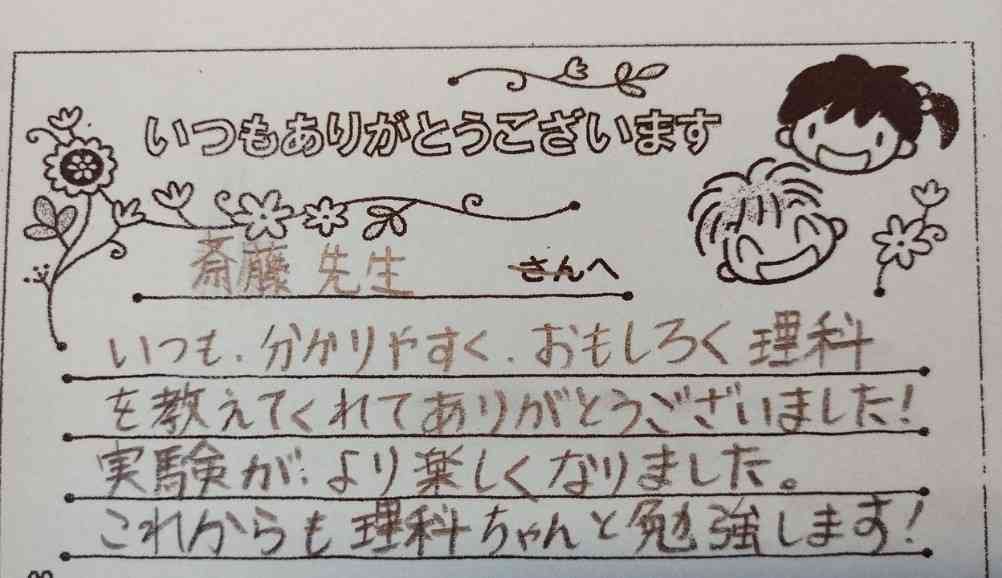 いつもありがとうございます
斎藤 先生 さんへ
いつも、分かりやすく、おもしろく理科
を教えてくれてありがとうございました!
実験が、より楽しくなりました。
これからも理科ちゃんと勉強します!